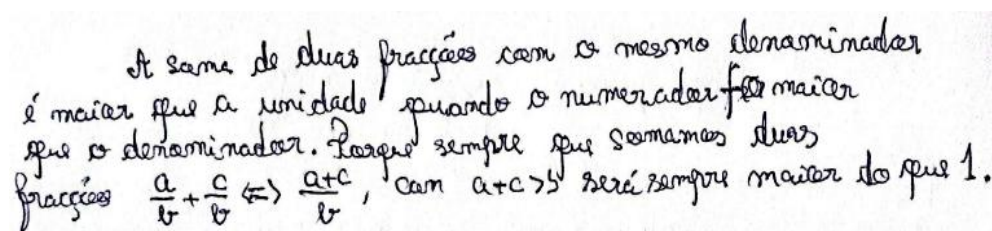 A soma de duas fracções com o mesmo denominador
é maior que a unidade quando o numerador for maior
que o denominador. Porque sempre que somamos duas
fracções a/b + c/b <=> a+c/b, com a+c>b será sempre maior do que 1.